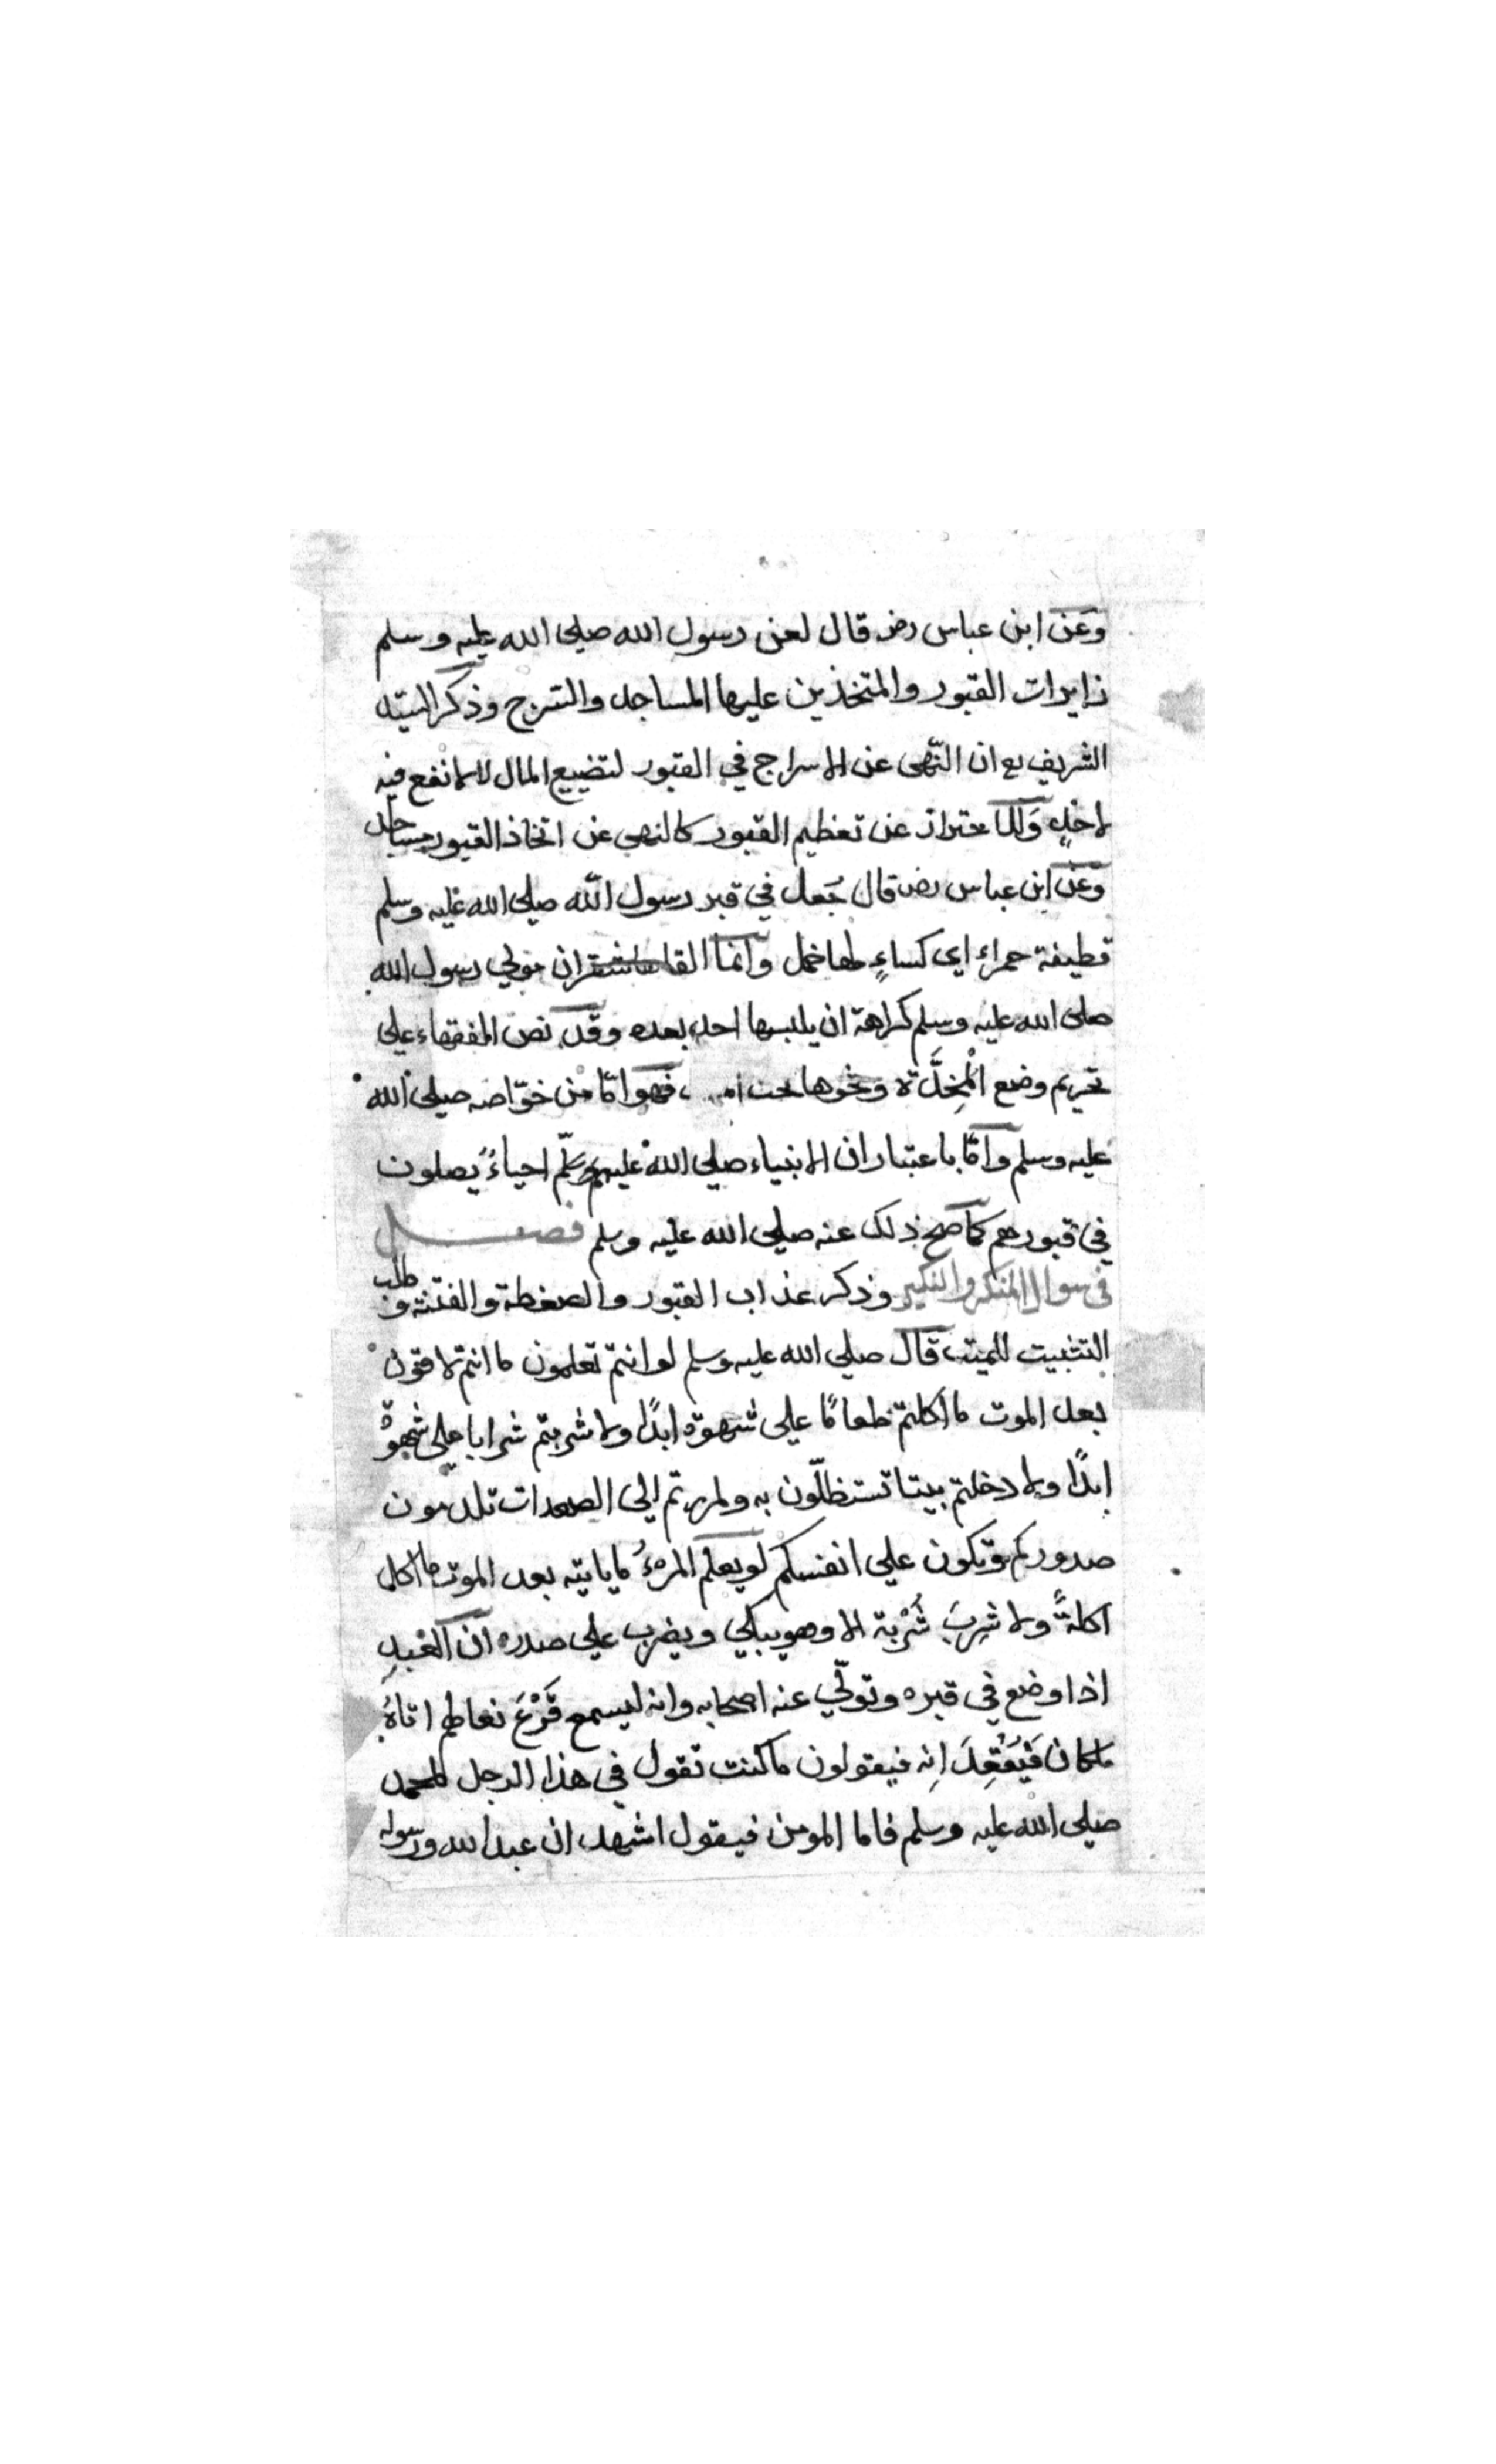 وعن ابن عباس رضـ قال لعن رسول الله صلى الله عليه وسلم
زايرات القبور والمتخذين عليها المساجد والسُّرج وذكر السيد
الشريف رح ان النّهى عن الاسراج في القبور لتضييع المال لانه لا نفع فيه
لاحدٍ وللاحتراز عن تعظيم القبور كالنهى عن اتخاذ القبور مساجد
وَعن ابن عباس رضـ قال جُعل في قبر رسول الله صلى الله عليه وسلم
قطيفة حمراء اى كساءٍ لها خمل وانما القاها شقران مولي رسول الله
صلى الله عليه وسلم كراهة ان يلبسها احد بعده وقد نص الفقهاء علي
تحريم وضع الْمِخدَّة ونحوها تحت فهو امّا من خوّاصه صلى الله
عليه وسلم وامّا باعتبار ان الانبياء صلى الله عليهم وسلّم احياءٌ يُصلون
في قبورهم كما صح ذلك عنه صلى الله عليه وسلم فصل
في سوال المنكر والنكير وذكر عذاب القبور والضغطة والفتنة وطلب
التثبيت للميت قال صلي الله عليه وسلم لو انتم تعلمون ما انتم لاقون
بعد الموت ما اكلتم طعامًا علي شهوة ابدًا ولا شربتم شرابا علي شهوة
ابدًا ولا دخلتم بيتا تستظلّون به ولمررتم الي الصعدات تلدمون
صدوركم وتبكون علي انفسكم لو يعلم المرءُ ما ياتيه بعد الموت ما اكل
اكلةً ولا شرِبَ شُرْبة الا وهو يبكي ويضرب علي صدره ان العبدِ
اذا وضع في قبره وتولّي عنه اصحابه وانه ليسمع قَرْعَ نعالهم اتاهُ
ملكان فيُقْعِدَانِه فيقولون ما كنت تقول في هذا الرجل لمحمد
صلى الله عليه وسلم فاما المومن فيقول اشهد ان عبد الله ورسوله